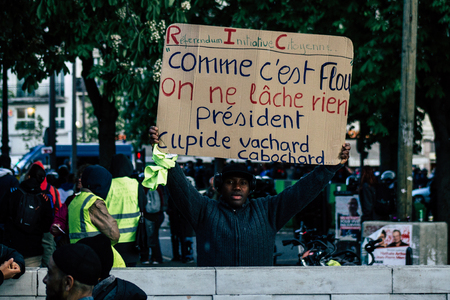 Référendum Initiative Citoyenne...
"comme c'est Flou
on ne lâche rien
président
cupide vachard
cabochard